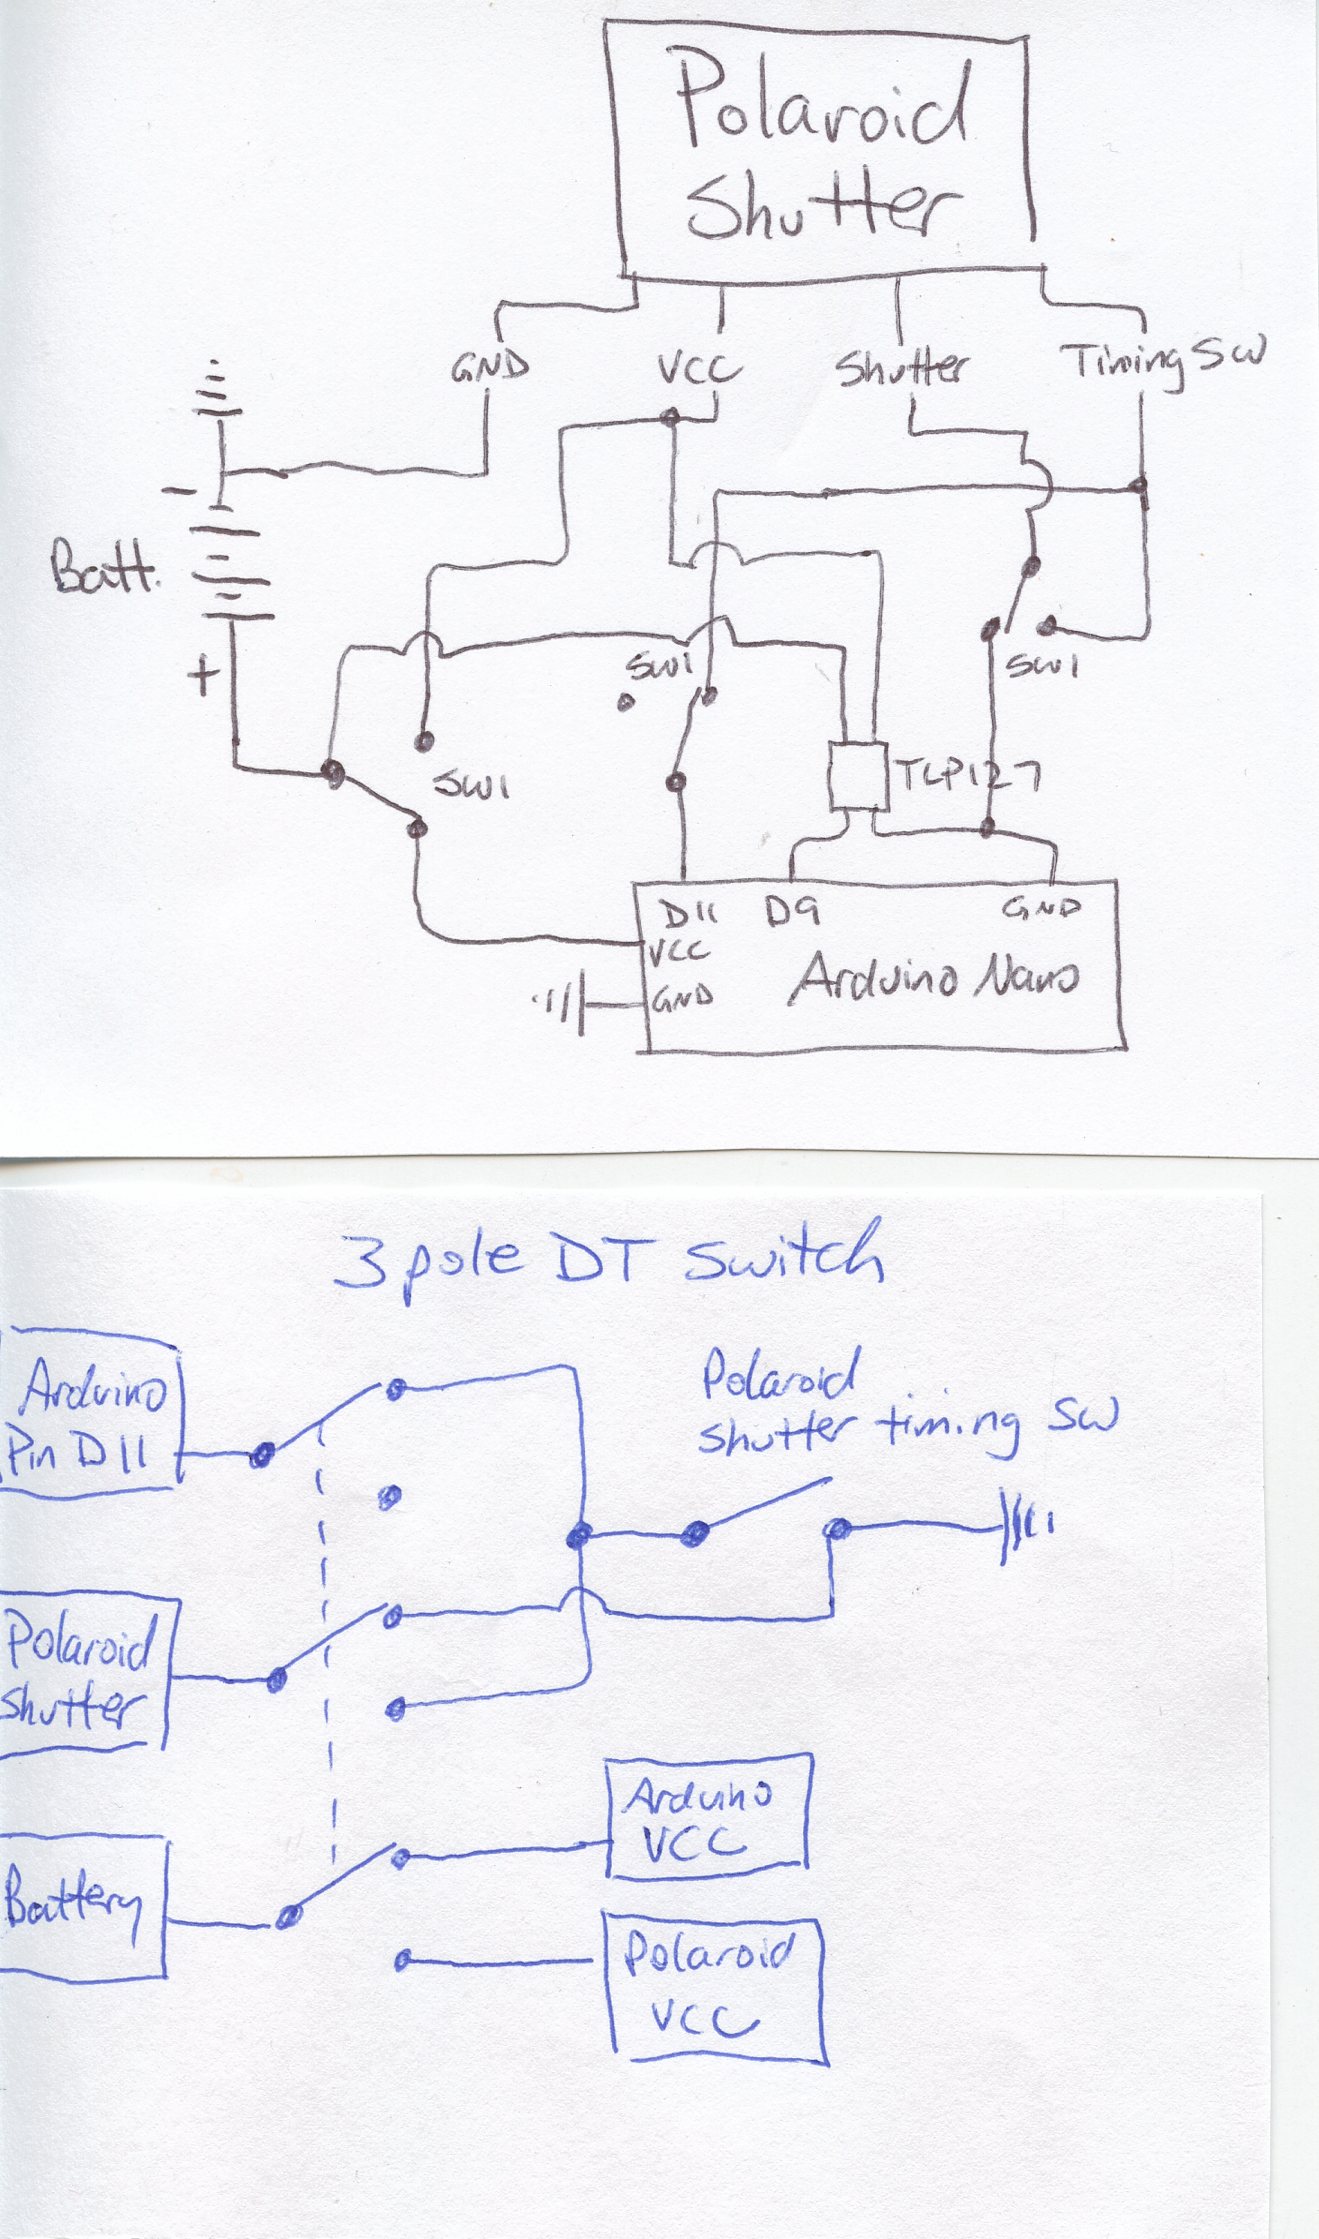 Polaroid
Shutter
GND
VCC
Shutter
Timing SW
-
Batt.
+
SW1
SW1
SW1
TLP127
D11
D9
GND
VCC
GND
Arduino Nano
3 pole DT Switch
Arduino
Pin D11
Polaroid
shutter timing SW
Polaroid
shutter
Battery
Arduino
VCC
Polaroid
VCC